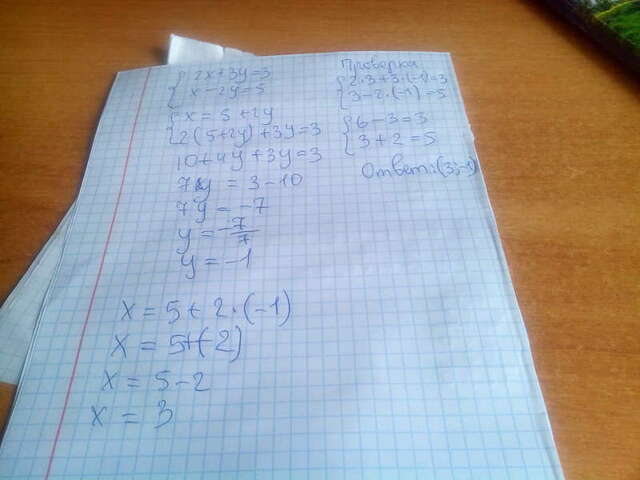 {2x+3y=3
{x-2y=5
{x=5+2y
{2(5+2y)+3y=3
10+4y+3y=3
7y=3-10
7y=-7
y=-7/7
y=-1
x=5+2·(-1)
x=5+(-2)
x=5-2
x=3
Проверка
{2·3+3·(-1)=3
{3-2·(-1)=5
{6-3=3
{3+2=5
Ответ:(3;-1)